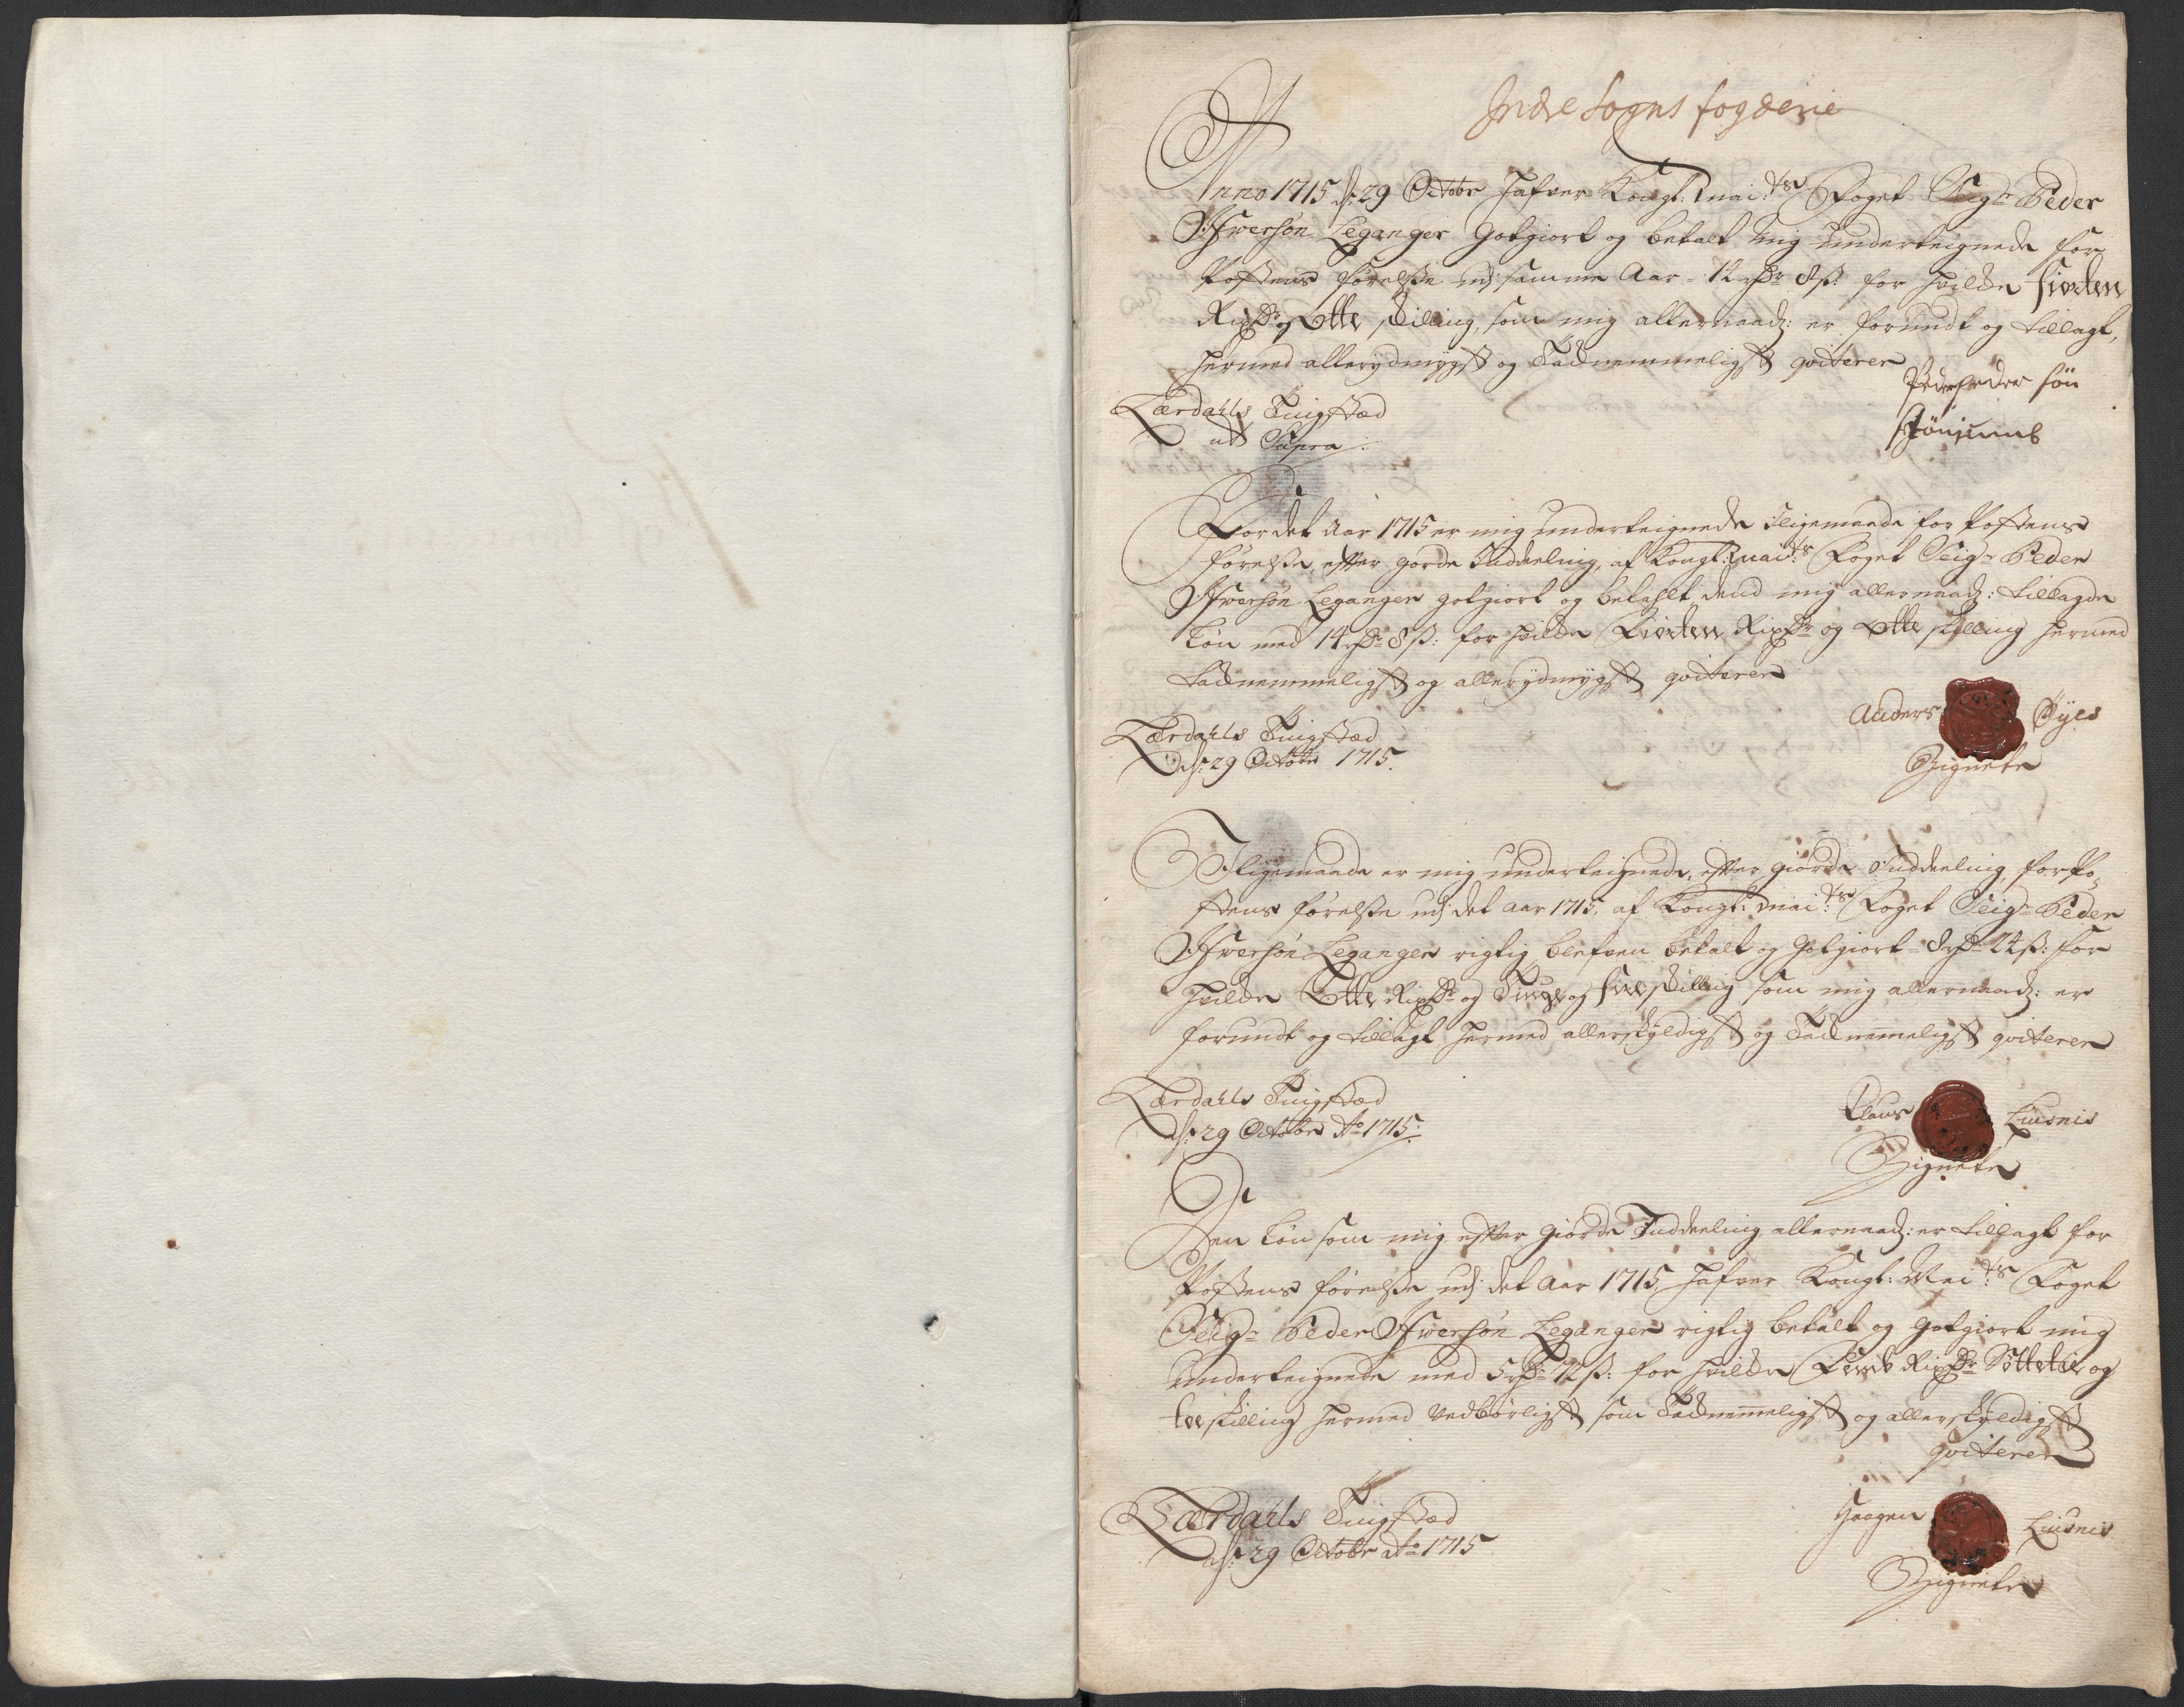 Indre Sogns fogderie
Anno 1715 d: 29 Octobr hafver Kongl: Mai:ts Foget Seigr Peder
Ifwersøn Leganger Gotgiort og betalt mig underteignede for
Postens førelse udj samme Aar - 14 rdr 8 s: for hvilcke fiorten
Rixdr og Otte skilling, som mig allernaad: er forundt og tillagt,
hermed allerydmygst og Tacknemmeligst qviterer
Lærdahls Tingstæd
ut Supra:
Peder Peder søn
For det Aar 1715 er mig underteignede Iligemaade for Postens
førelse, efter giorde Inddeeling, af Kongl: Mai:ts Foget Seigr Peder
Ifwersøn Leganger gotgiort og betahlt dend mig allernaad: tillagde
Løn med 14 rdr 8 s: for hvilcke Fiorten Rixdr og Otte skilling hermed
tacknemmeligst og allerydmygst qviterer
Lærdahls Tingstæd
d: 29 Octobr 1715.
Anders Øyes
Zignete
Iligemaade er mig underteignede, efter giorde Inddeeling for Po-
stens førelse udj det aar 1715, af Kongl: Mai:ts Foget Seigr Peder
Ifwersøn Leganger rigtig blefven betalt og Gotgiort 8 rdr 24 s: for
hvilcke Otte Rixdr og Tiuge og fire skilling som mig allernaad: er
forundt og tillagt hermed allerskyldigst og Tacknemmeligst qviterer
Lærdahls Tingstæd
d: 29 Octobr Ao 1715:
Claus Liusnis
Zignete
Den Løn som mig efter giorde Inddeeling allernaad: er tillagt for
Postens førelse udj det Aar 1715, hafver Kongl: Mai:ts Foget
Seigr Peder Ifwersøn Leganger rigtig betalt og gotgiort mig
underteignede med 5 rdr 72 s: for hvilcke Fem Rixdr Søttetie og
toe skilling hermed vedbørligst som Tacknemmeligst og allerskyldigst
qviterer
Lærdahls Tingstæd
d: 29 Octobr Ao 1715
Haagen Liusnes
Zignete